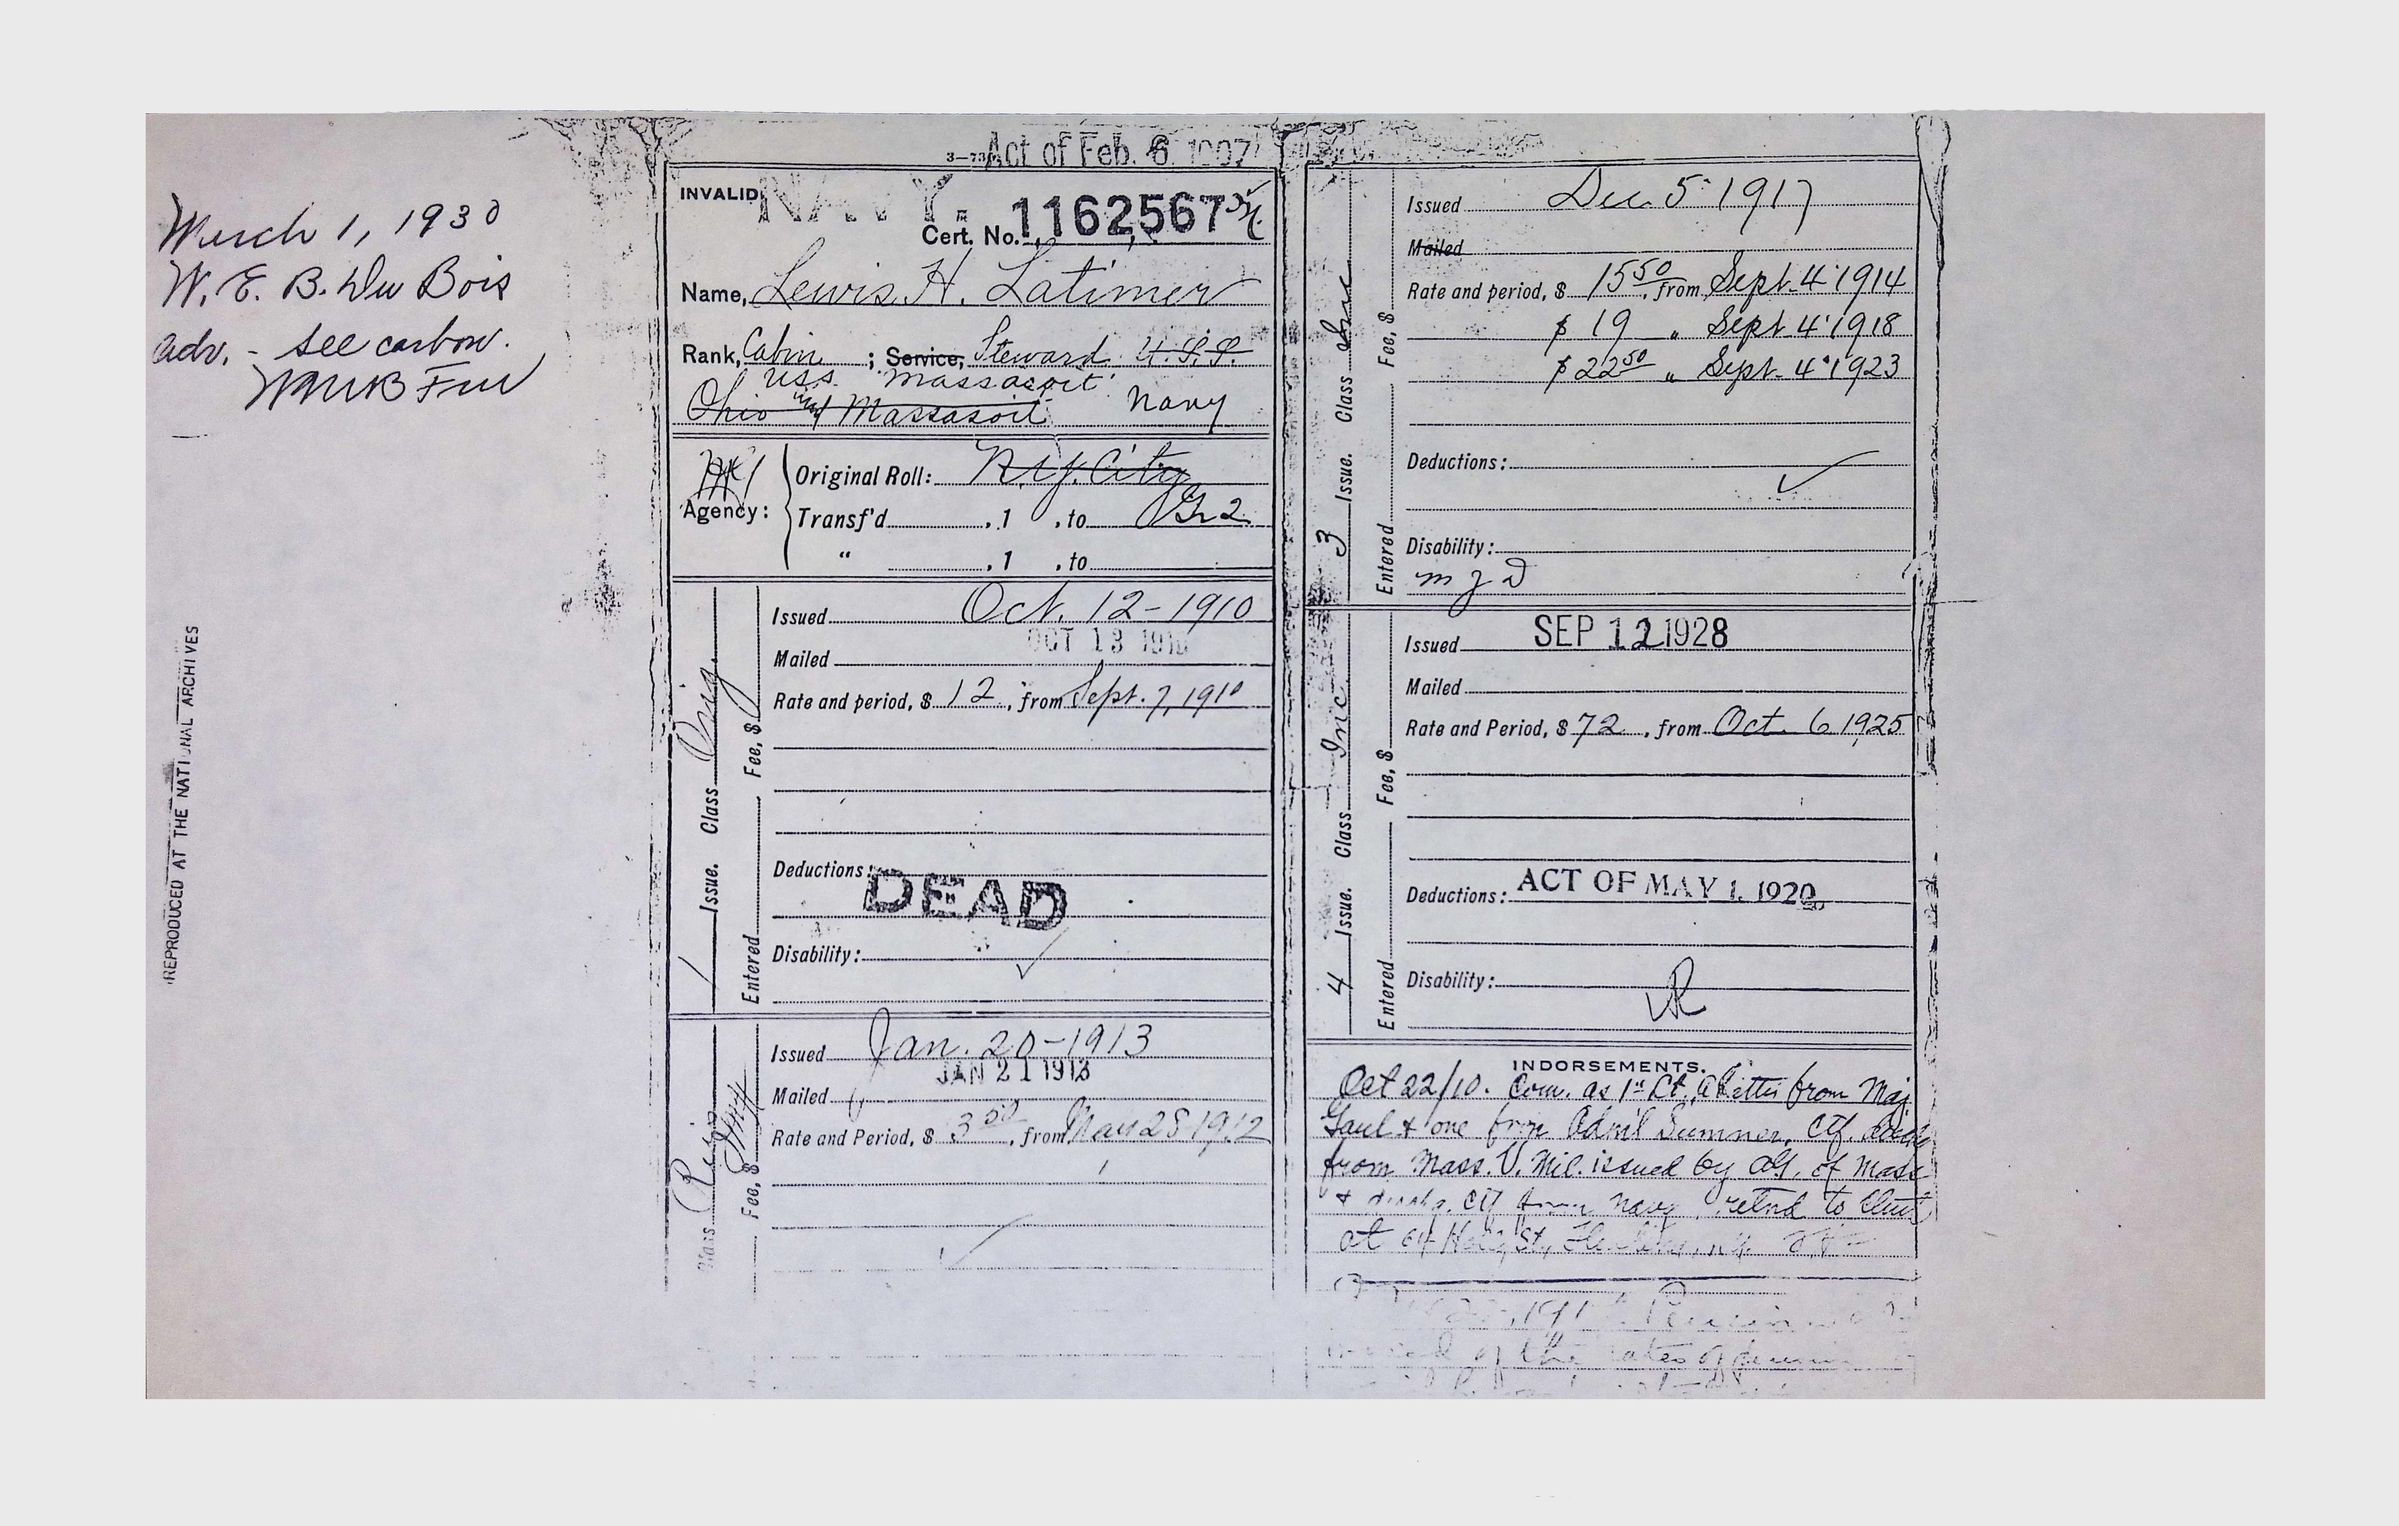 March 1, 1930
W. E. B. Du Bois
adv. - see carbon.
REPRODUCED AT THE NATIONAL ARCHIVES
Act of Feb. 6, 1907
INVALID. NAVY.
Cert. No. 1162567
Name, Lewis H. Latimer
Rank, Cabin ; Service, Steward U.S.S.
U.S.S. Massasoit
Ohio and Massasoit Navy
Agency:
Original Roll: N.Y. City
Transf'd , 1 , to Gr 2
" , 1 , to
1 Issue. Class Orig
Entered Fee, $
Issued Oct. 12-1910
Mailed OCT 13 1910
Rate and period, $ 12 , from Sept. 7, 1910
Deductions:
DEAD
Disability:
Class
Fee, $
Issued Jan. 20-1913
Mailed JAN 21 1913
Rate and Period, $ , from 1912
3 Issue. Class Inc
Entered Fee, $
Issued Dec 5 1917
Mailed
Rate and period, $ 15 50 , from Sept. 4 1914
$ 19 " Sept 4 1918
$ 22 50 " Sept. 4 1923
Deductions:
Disability:
4 Issue. Class Inc
Entered Fee, $
Issued SEP 12 1928
Mailed
Rate and Period, $ 72 , from Oct. 6 1925
Deductions: ACT OF MAY 1, 1920
Disability:
INDORSEMENTS.
Oct 22/10. Com. as 1st Lt., a letter from Maj
Gaul & one from Adm'l Sumner, Ctf.
from Mass. V. Mil. issued by AG. of Mass
& Ctf from Navy retnd to Clmt
at 64 Holly St,